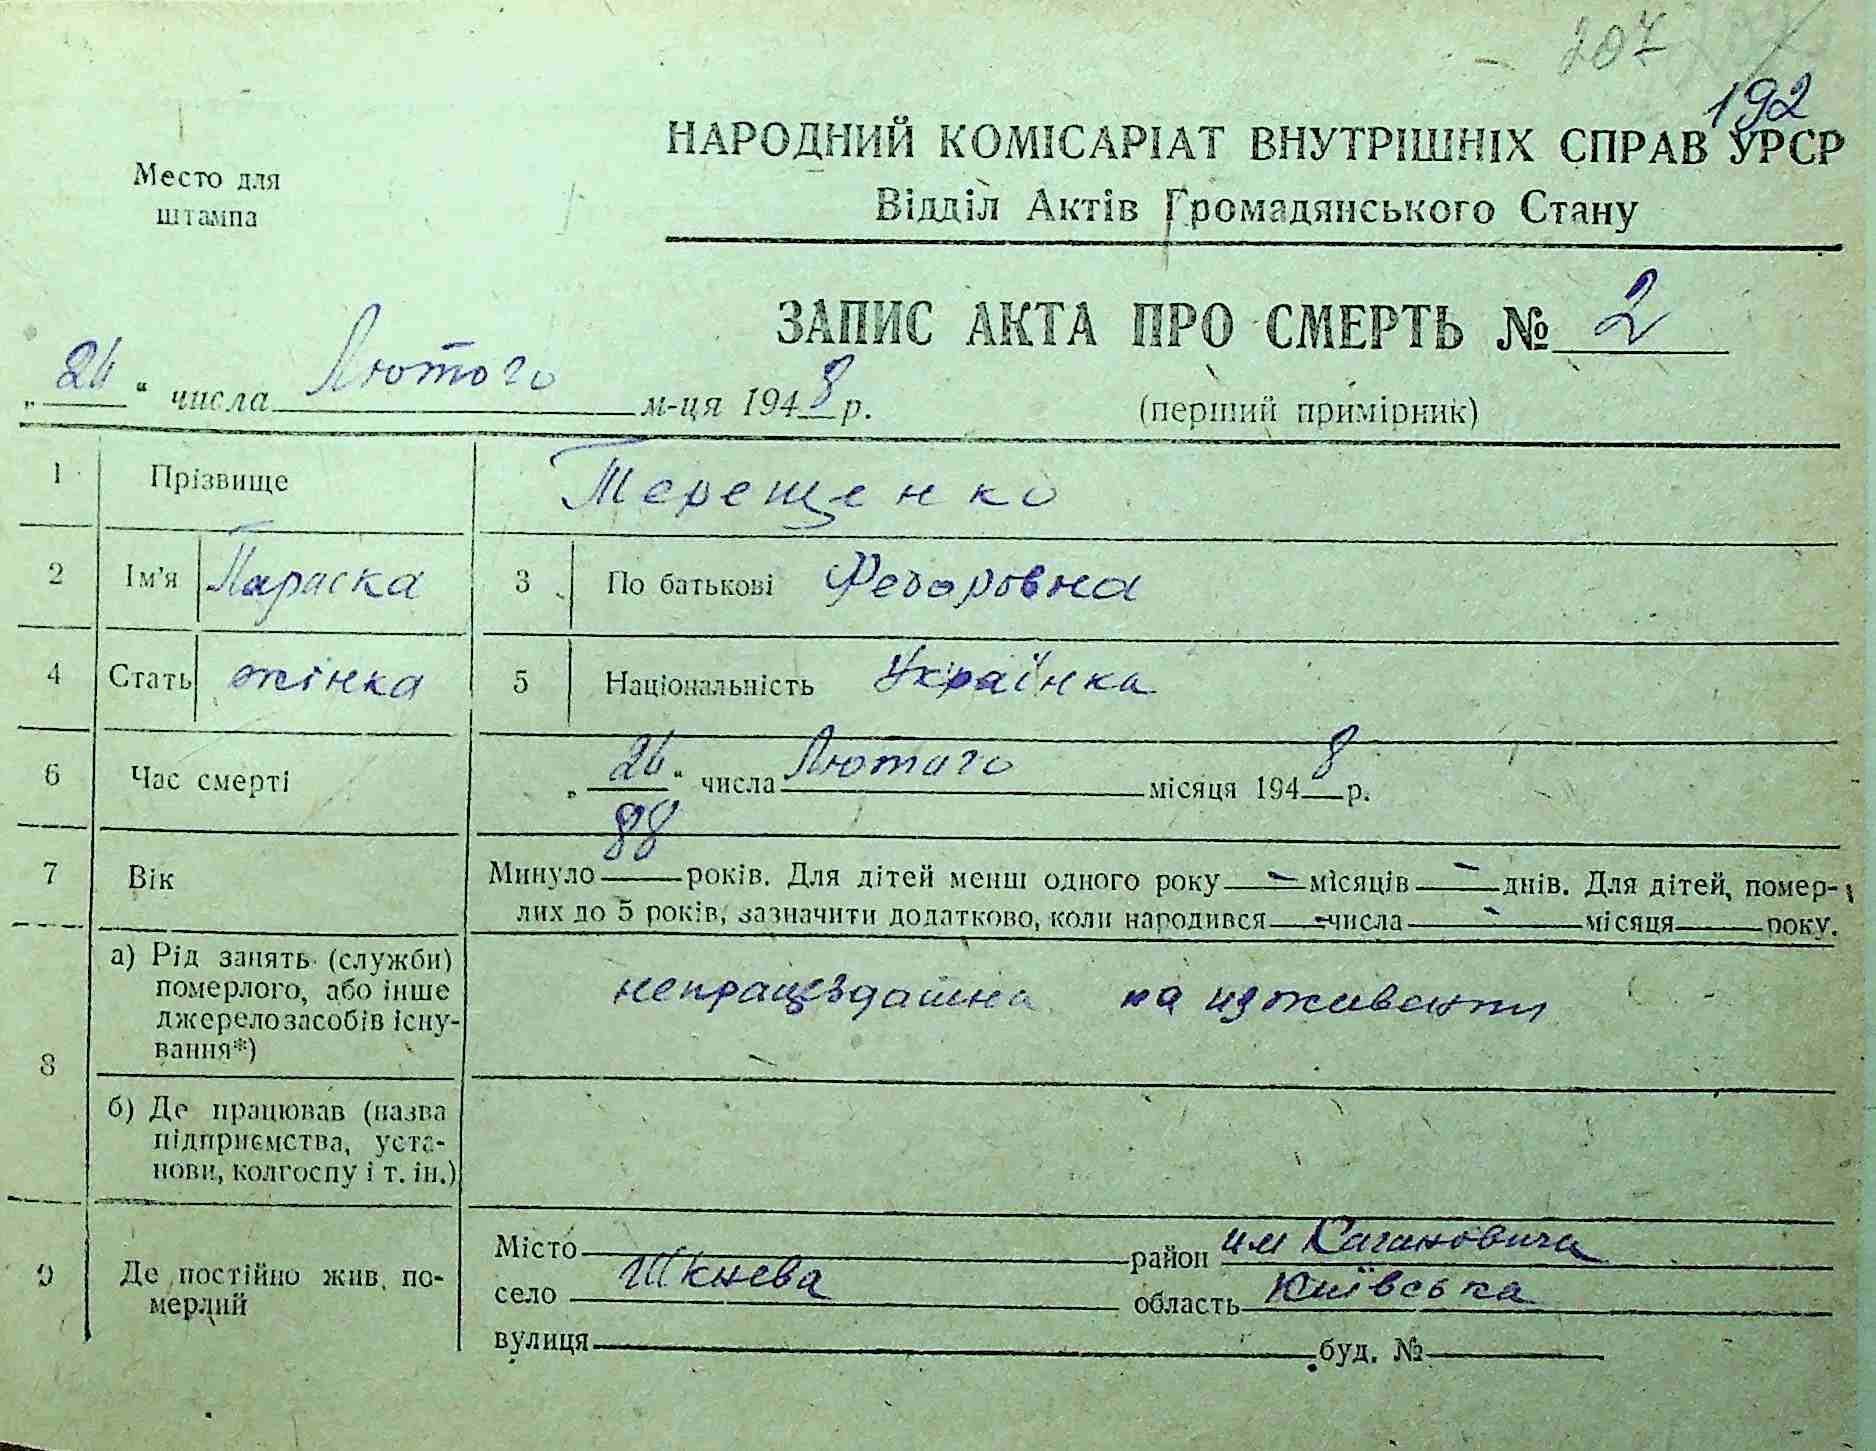 207
192
Место для
штампа
НАРОДНИЙ КОМІСАРІАТ ВНУТРІШНІХ СПРАВ УРСР
Відділ Актів Громадянського Стану
ЗАПИС АКТА ПРО СМЕРТЬ № 2
„24“ числа Лютого м-ця 1948 р.
(перший примірник)
1 Прізвище Терещенко
2 Ім'я Параска 3 По батькові Федоровна
4 Стать жінка 5 Національність Українка
6 Час смерті „24“ числа Лютого місяця 1948 р.
7 Вік Минуло 88 років. Для дітей менш одного року — місяців — днів. Для дітей, помер-
лих до 5 років, зазначити додатково, коли народився — числа — місяця року.
8 а) Рід занять (служби)
померлого, або інше
джерело засобів існу-
вання*)
непрацездатна на иживенни
б) Де працював (назва
підприємства, уста-
нови, колгоспу і т. ін.)
9 Де постійно жив по-
мерлий
Місто район им Кагановича
село Шкнева область Київська
вулиця буд. №